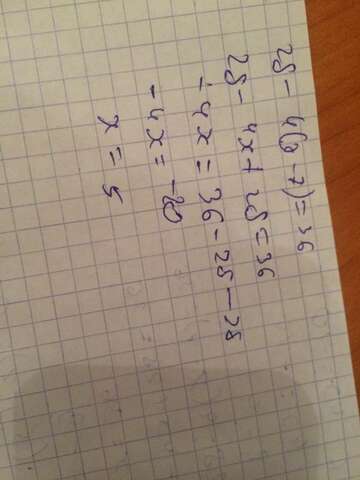 28 - 4(x - 7) = 36
28 - 4x + 28 = 36
-4x = 36 - 28 - 28
-4x = -20
x = 5